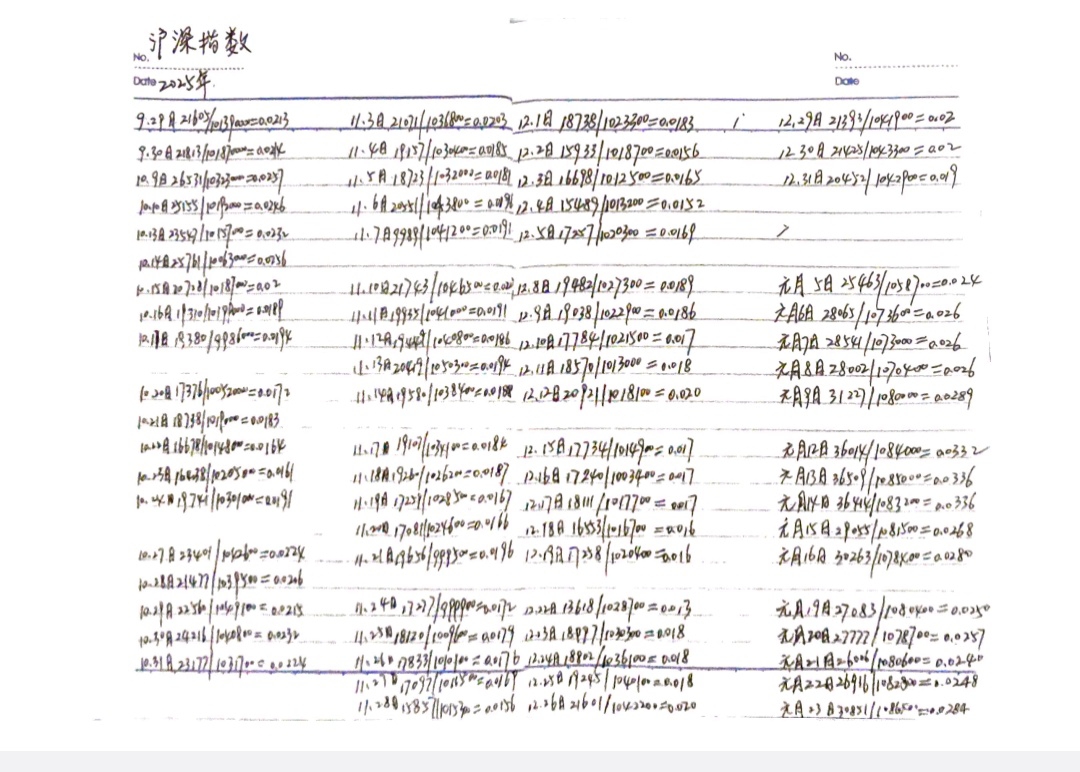 No. 沪深指数
Date 2025年
No.
Date
9.29日 21605/1013900=0.0213
9.30日 21813/1018700=0.0214
10.9日 26531/1032300=0.0257
10.10日 25155/1019200=0.0246
10.13日 23549/1015700=0.0232
10.14日 25761/1006300=0.0256
10.15日 20728/1018700=0.02
10.16日 19310/1019400=0.0189
10.17日 19380/998600=0.0194
10.20日 17376/1005200=0.0172
10.21日 18738/1019000=0.0183
10.22日 16678/1014800=0.0164
10.23日 16438/1020500=0.0161
10.24日 19741/1030100=0.0191
10.27日 23401/1042600=0.0224
10.28日 21477/1039500=0.0206
10.29日 22560/1049100=0.0215
10.30日 24216/1040800=0.0232
10.31日 23177/1031700=0.0224
11.3日 21071/1036800=0.0203
11.4日 19157/1030400=0.0185
11.5日 18723/1032000=0.0181
11.6日 20551/1043800=0.0196
11.7日 9989/1041200=0.0191
11.10日 21743/1046500=0.02
11.11日 19935/1041000=0.0191
11.12日 19449/1040800=0.0186
11.13日 20419/1050300=0.0194
11.14日 19580/1038400=0.0188
11.17日 19107/1034100=0.0184
11.18日 19260/1026200=0.0187
11.19日 17251/1028500=0.0167
11.20日 17081/1024600=0.0166
11.21日 19656/999500=0.0196
11.24日 17277/999900=0.0172
11.25日 18120/1009600=0.0179
11.26日 17833/1010100=0.0176
11.27日 17097/1011500=0.0169
11.28日 15857/1015300=0.0156
12.1日 18738/1023300=0.0183
12.2日 15933/1018700=0.0156
12.3日 16698/1012500=0.0165
12.4日 15489/1013200=0.0152
12.5日 17257/1020300=0.0169
12.8日 19482/1027300=0.0189
12.9日 19038/1022900=0.0186
12.10日 17784/1021500=0.017
12.11日 18570/1013000=0.018
12.12日 20921/1018100=0.020
12.15日 17734/1014900=0.017
12.16日 17240/1003400=0.017
12.17日 18111/1017700=0.017
12.18日 16553/1016700=0.016
12.19日 17258/1020400=0.016
12.22日 13618/1028700=0.013
12.23日 18997/1030300=0.018
12.24日 18802/1036100=0.018
12.25日 19245/1040100=0.018
12.26日 21601/1042200=0.020
12.29日 21393/1041900=0.02
12.30日 21425/1043300=0.02
12.31日 20452/1042900=0.019
元月5日 25463/1058700=0.024
元月6日 28065/1073600=0.026
元月7日 28541/1073000=0.026
元月8日 28002/1070400=0.026
元月9日 31227/1080000=0.0289
元月12日 36014/1084000=0.0332
元月13日 36509/1085000=0.0336
元月14日 36414/1083200=0.0336
元月15日 29055/1081500=0.0268
元月16日 30263/1078400=0.0280
元月19日 27083/1080400=0.0250
元月20日 27777/1078700=0.0257
元月21日 26006/1080600=0.0240
元月22日 26916/1082900=0.0248
元月23日 30851/1086500=0.0284